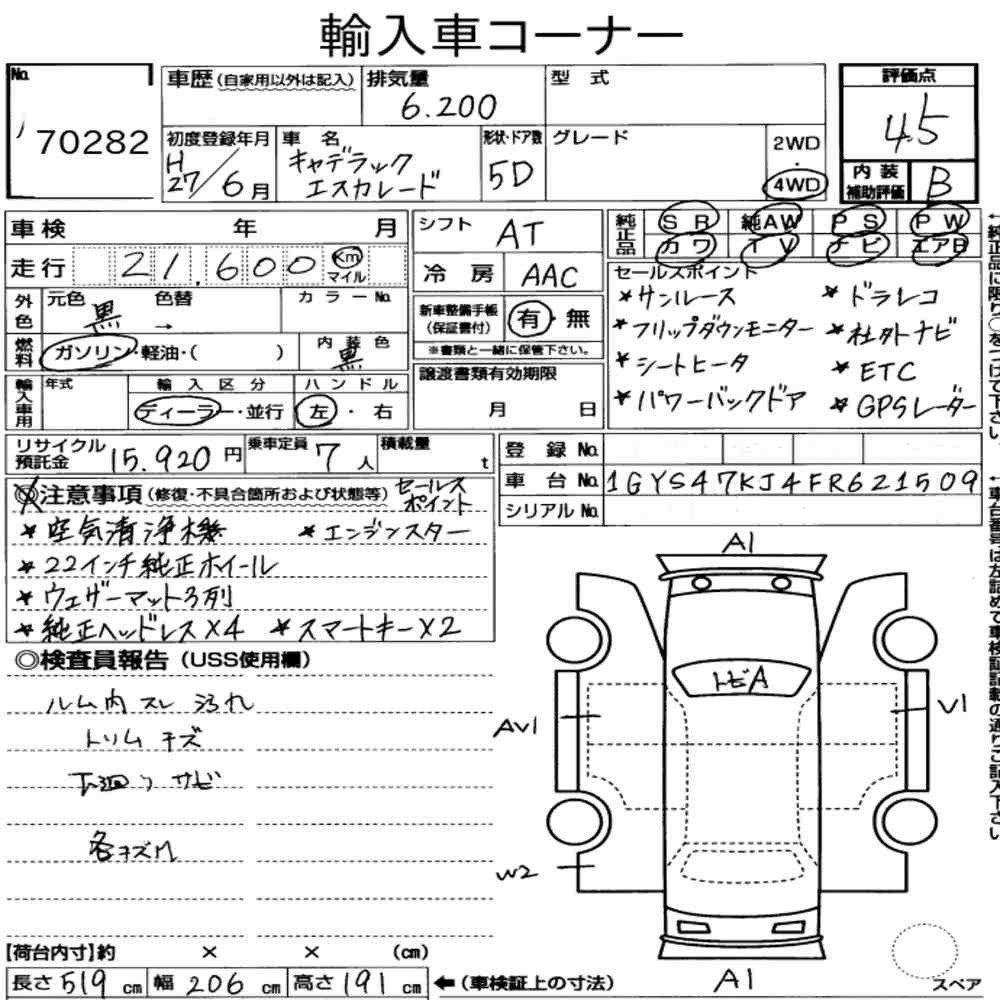 輸入車コーナー
No. 70282
車歴(自家用以外は記入) 排気量 6.200 型式
評価点 4.5
初度登録年月 H27/6月 車名 キャデラック エスカレード 形状・ドア数 5D グレード 2WD・4WD
内装補助評価 B
車検 年 月 シフト AT
純正品 SR 純AW PS PW
カワ TV ナビ エアB
走行 21,600 Km マイル 冷房 AAC
外色 元色 黒 色替 → カラーNo.
新車整備手帳(保証書付) 有・無
※書類と一緒に保管下さい。
燃料 ガソリン・軽油・( ) 内装色 黒
セールスポイント
*サンルース *ドラレコ
*フリップダウンモニター *社外ナビ
*シートヒータ *ETC
*パワーバックドア *GPSレーダー
輸入車用 年式 輸入区分 ディーラー・並行 ハンドル 左・右
譲渡書類有効期限 月 日
リサイクル預託金 15.920円 乗車定員 7人 積載量 t
登録No.
車台No. 1GYS47KJ4FR621509
シリアルNo.
◎注意事項(修復・不具合箇所および状態等) セールスポイント
*空気清浄機 *エンジンスター
*22インチ純正ホイール
*ウェザーマット3列
*純正ヘッドレスX4 *スマートキーX2
◎検査員報告(USS使用欄)
ルム内スレ汚れ
トリムキズ
下廻りサビ
各キズ凹
A1
トビA
AV1
V1
W2
A1
スペア
【荷台内寸】約 × × (cm)
長さ 519 cm 幅 206 cm 高さ 191 cm ←(車検証上の寸法)
←純正品に限り○をつけて下さい。
←車台番号は左詰めで車検証記載の通りご記入下さい